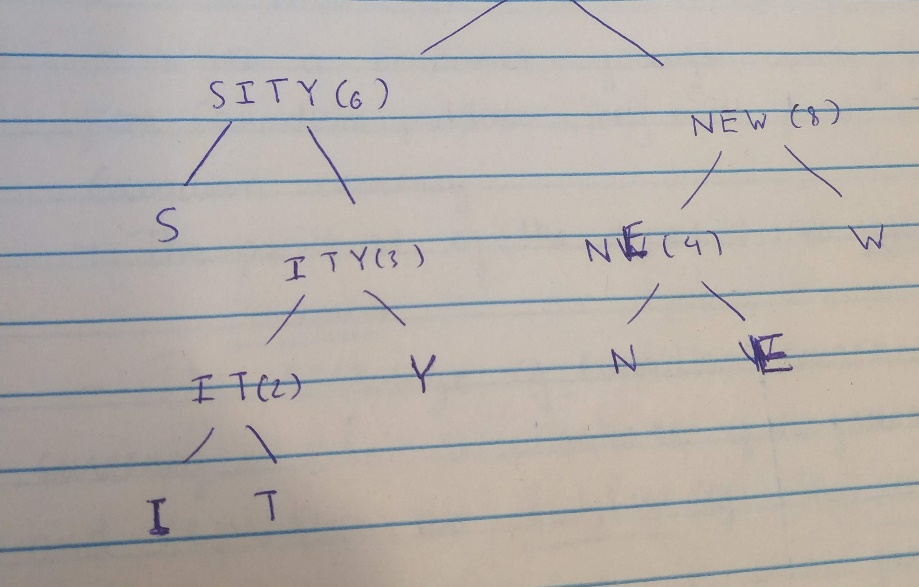 SITY(6)
NEW (8)
S
ITY(3)
NE(4)
W
IT(2)
Y
N
E
I
T